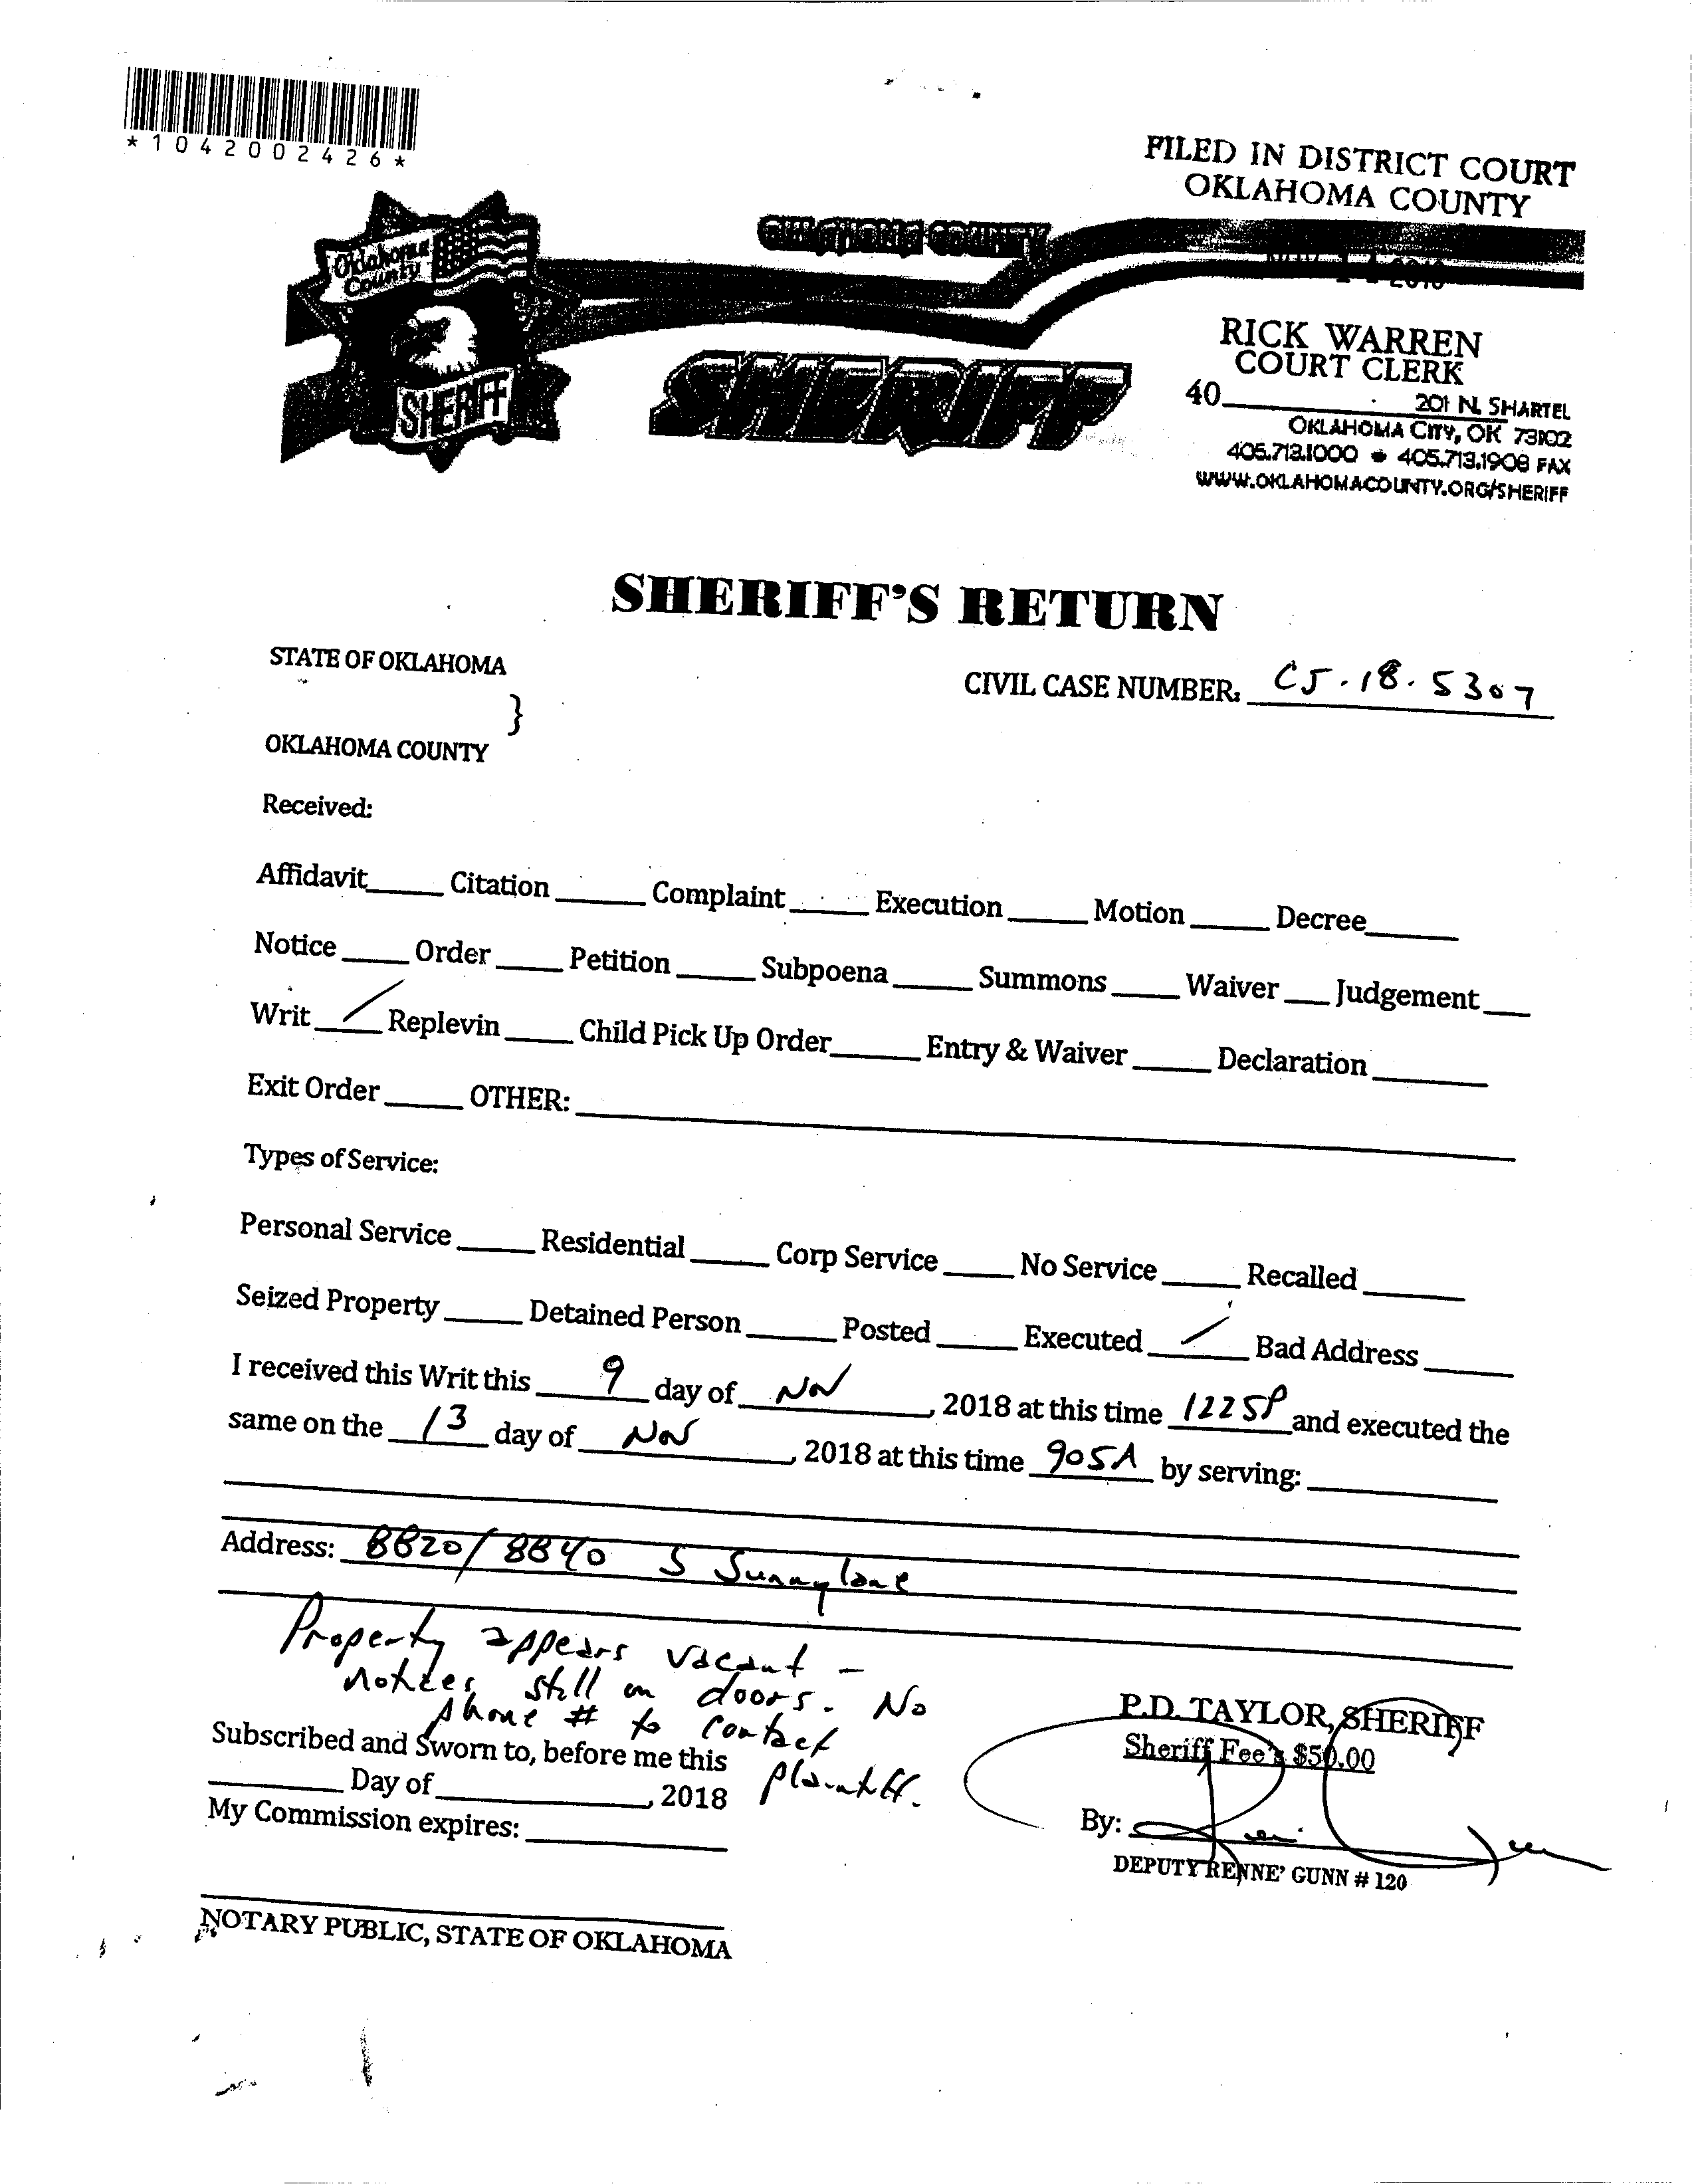 *1042002426*
FILED IN DISTRICT COURT
OKLAHOMA COUNTY
OKLAHOMA COUNTY
Oklahoma
County
SHERIFF
SHERIFF
RICK WARREN
COURT CLERK
40
201 N. SHARTEL
OKLAHOMA CITY, OK 73102
405.713.1000 • 405.713.1908 FAX
WWW.OKLAHOMACOUNTY.ORG/SHERIFF
SHERIFF'S RETURN
STATE OF OKLAHOMA
}
CIVIL CASE NUMBER: CJ-18-5307
OKLAHOMA COUNTY
Received:
Affidavit_____ Citation_____ Complaint_____ Execution_____ Motion_____ Decree_____
Notice_____ Order_____ Petition_____ Subpoena_____ Summons_____ Waiver___ Judgement___
Writ__/__ Replevin_____ Child Pick Up Order_____ Entry & Waiver_____ Declaration_____
Exit Order_____ OTHER:_____
Types of Service:
Personal Service_____ Residential_____ Corp Service_____ No Service_____ Recalled_____
Seized Property_____ Detained Person_____ Posted_____ Executed__/__ Bad Address_____
I received this Writ this 9 day of Nov, 2018 at this time 1225P and executed the
same on the 13 day of Nov, 2018 at this time 905A by serving:_____
Address: 8820/8840 S Sunnylane
Property appears vacant -
notices still on doors. No
phone # to contact
plaintiff.
P.D. TAYLOR, SHERIFF
Sheriff Fee's $50.00
Subscribed and Sworn to, before me this
_____ Day of_____, 2018
My Commission expires:_____
By:
DEPUTY RENNE' GUNN # 120
NOTARY PUBLIC, STATE OF OKLAHOMA